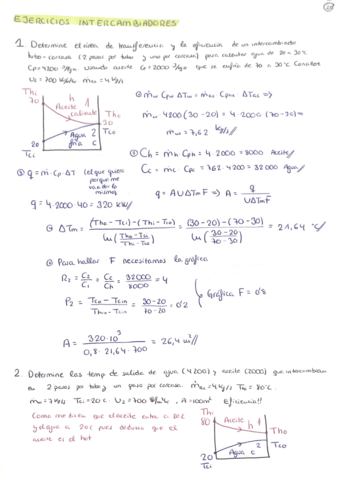 EJERCICIOS INTERCAMBIADORES
1. Determine el área de transferencia y la eficiencia de un intercambiador
tubo-carcasa (2 pasos por tubo y uno por carcasa) para calentar agua de 20 a 30ºC
Cpw = 4200 J/kg usando aceite Cp = 2000 J/kg que se enfría de 70 a 30ºC
U2 = 700 4 kg/s
Thi
70
h 1
Aceite
caliente
Tho
30
Tco
Agua 2
fría c
20
Tci
① ṁw Cpw ΔTw = ṁas Cpas ΔTas ⇒
ṁw 4200 (30-20) = 4·2000 (70-30) =
ṁw = 7,62 kg/s //
② q = ṁ·Cp·ΔT
q = 4·2000·40 = 320 kW //
③ Ch = ṁh Cph = 4·2000 = 8000 Aceite //
Cc = ṁc Cpc = 7,62·4200 = 32000 Agua //
q = A U ΔTm F ⇒ A = q / UΔTm F
④ ΔTm = (Tho - Tci) - (Thi - Tco) / ln (Tho - Tci / Thi - Tco) = (30-20) - (70-30) / ln (30-20 / 70-30) = 21,64 ºC //
⑤ Para hallar F necesitamos la gráfica
R2 = C2/C1 = Cc/Ch = 32000/8000 = 4
P2 = Tco - Tcin / Thin - Tcin = 30-20 / 70-20 = 0'2
Gráfica F = 0'8
A = 320·10³ / 0,8·21,64·700 = 26,4 m² //
2. Determine las temp de salida de agua (4200) y aceite (2000) que intercambian
en 2 pasos por tubo y un paso por carcasa. 4 kg/s Th = 80ºC
ṁw = 7 kg/s Tci = 20ºC. U2 = 700 , A = 100m² Eficiencia!!
Como me dicen que el aceite entra a 80ºC
y el agua a 20ºC pues deduzco que el
aceite es el hot
Thi
80
Aceite h 1
Tho
Tco
Agua c
20
Tci